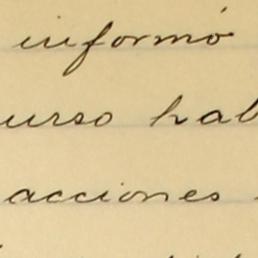 informó
urso hab
acciones